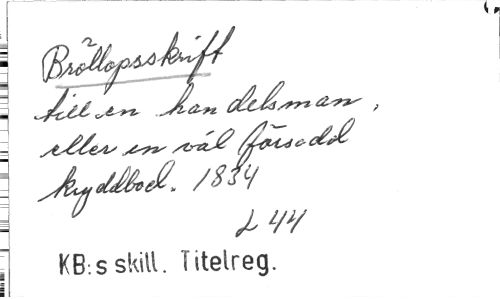 Bröllopsskrift
till en handelsman,
eller en väl försedd
kryddbod. 1834
L 44
KB:s skill. Titelreg.